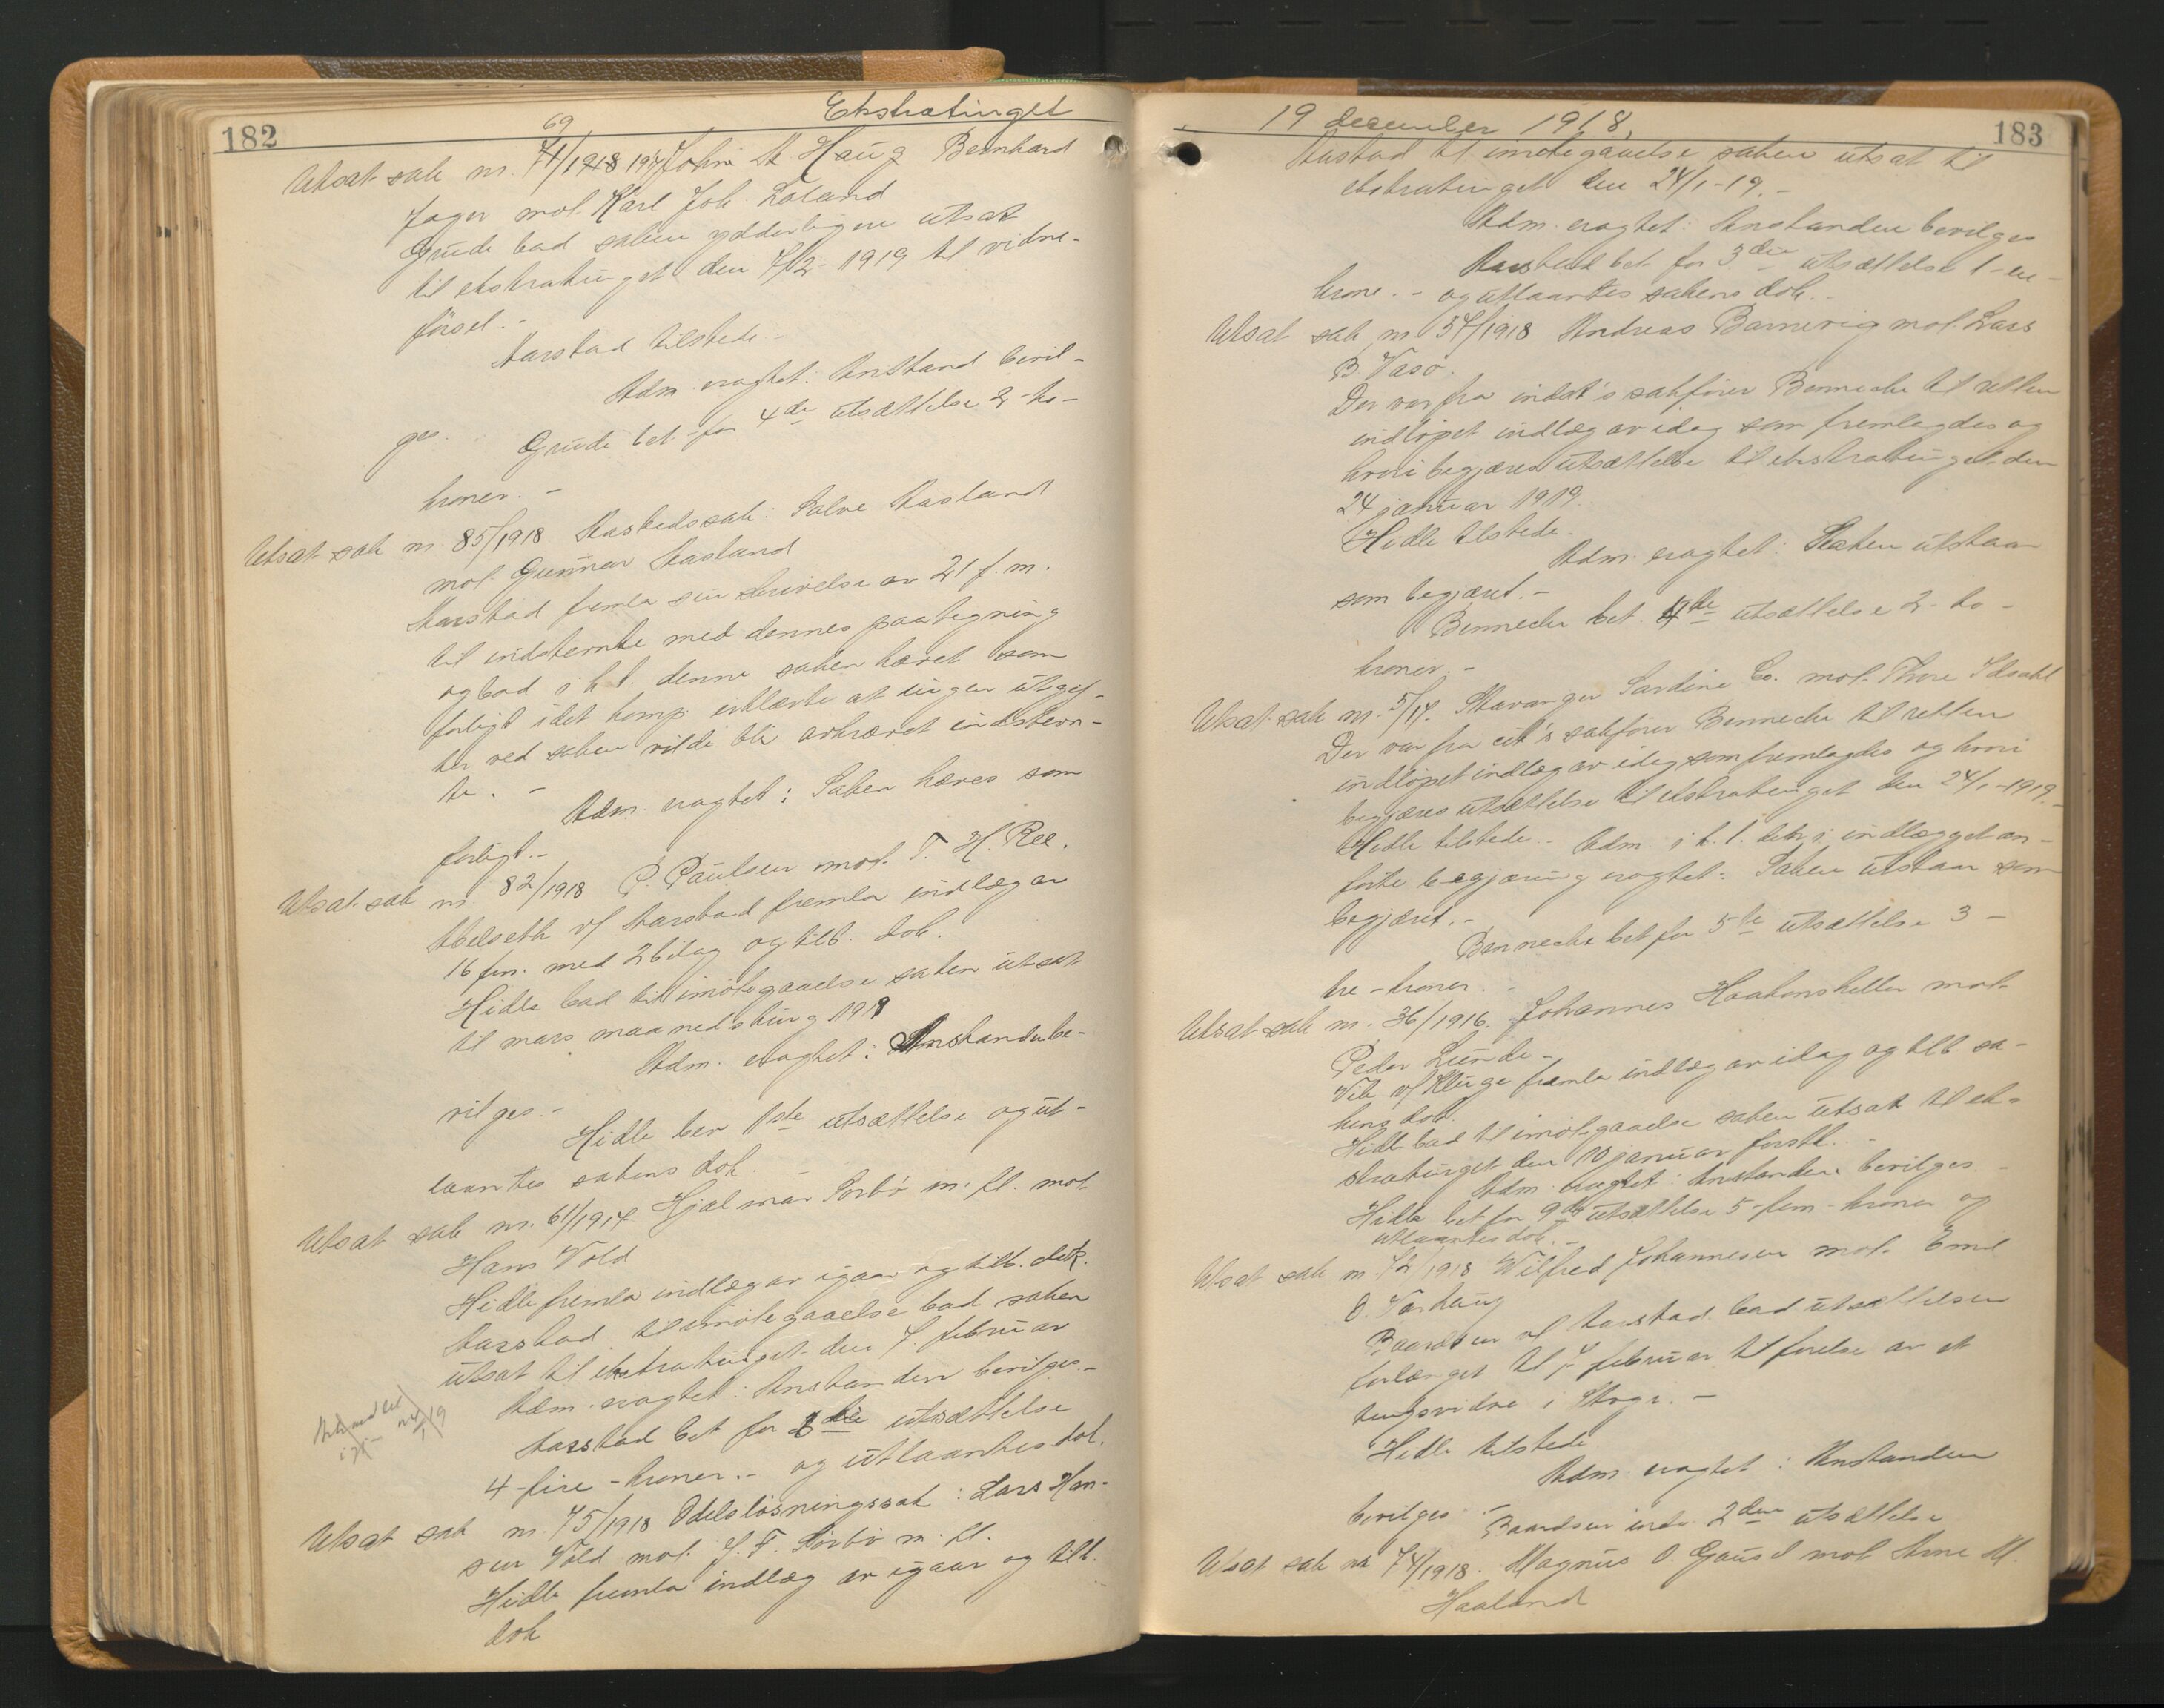 182
Ekstratinget
Utsat sak nr. 69 71/1918 1917 John A Haug Bernhard
Jager mot Karl Joh. Zoland
Grude bad saken ydderligere utsat
til ekstratinget den 7/2-1919 til vidne-
førsel.-
Aarstad tilstede-
Adm. eragtet: Anstand bevil-
ges.
Grude bet for 4de utsættelse 2-to-
kroner.-
Utsat sak nr 85/1918 Aastedssak: Salve Aasland
mot Gunnar Aasland
Aarstad fremla sin skrivelse av 21 f.m.
til indstevnte med dennes paategning
og bad i h.t. denne saken hævet som
forligt idet komp. erklærte at ingen utgif-
ter ved saken vilde bli avkrævet indstevn-
te.-
Adm. eragtet: Saken hæves som
forligt.-
Utsat sak nr. 82/1918 P. Paulsen mot T. H. Ree.
Abelseth v/ Aarstad fremla indlæg av
16 ds. med 2 bilag og tilb. dok.
Hidle bad til imøtegaaelse saken utsat
til mars maanedsting 1919
Adm. eragtet: Anstanden be-
vilges.-
Hidle ber 1ste utsættelse og ut-
laantes sakens dok.-
Utsat sak nr. 61/1917 Hjalmar Sørbø m. fl. mot
Hans Vold
Hidle fremla indlæg av igaar og tilb. dok.
Aarstad til imøtegaaelse bad saken
utsat til ekstratinget den 7 februar
Adm. eragtet: Anstanden bevilges.-
Aarstad bet for 8de utsættelse
4-fire-kroner.- og utlaantes dok.
Behandlet
igj. 24/1 19
Utsat sak nr. 75/1918 Odelsløsningssak: Lars Han-
sen Vold mot J. F. Sørbø m. fl.
Hidle fremla indlæg av igaar og tilb.
dok
19 december 1918,
183
Aastad til imøtegaaelse saken utsat til
ekstratinget den 24/1-19.-
Adm. eragtet: Anstanden bevilges
Aarstad bet. for 3die utsættelse 1-en-
krone.- og utlaantes sakens dok.-
Utsat sak nr 57/1918 Andreas Barnevig mot Lars
B Vasø.
Der var fra indst's sakfører Bennecke til retten
indløpet indlæg av idag som fremlagdes og
hvori begjæres utsættelse til ekstratinget den
24 januar 1919.
Hidle tilstede.
Adm. eragtet: Saken utstaar
som begjæret.-
Bennecke bet. 4de utsættelse 2-to-
kroner.-
Utsat sak nr. 5/17. Stavanger Sardine Co. mot Thore Idsahl
Der var fra cit's sakfører Bennecke til retten
indløpet indlæg av idag som fremlagdes og hvori
begjæres utsættelse til ekstratinget den 24/1-1919.-
Hidle tilstede.- Adm. i h.t. den i indlægget an-
førte begjæring eragtet: Saken utstaar som
begjæret.-
Bennecke bet for 5te utsættelse 3-
tre-kroner.-
Utsat sak nr. 36/1916. Johannes Haakonshellen mot
Peder Lunde-
Vik v/ Kluge fremla indlæg av idag og tilb. sa-
kens dok.
Hidle bad til imøtegaaelse saken utsat til ek-
stratinget den 10 januar førstk.-
Adm. eragtet: Anstanden bevilges-
Hidle bet for 9de utsættelse 5-fem-kroner og
utlaantes dok.-
Utsat sak nr. 72/1918 Wilfred Johannesen mot Emil
O. Varhaug
Baardsen v/ Aarstad bad utsættelsen
forlænget til 7 februar til førelse av et
tingsvidne i Stryn.-
Hidle tilstede
Adm. eragtet: Anstanden
bevilges.-
Baardsen indr. 2den utsættelse
Utsat sak nr 74/1918. Magnus O. Gausel mot Arne M.
Haaland